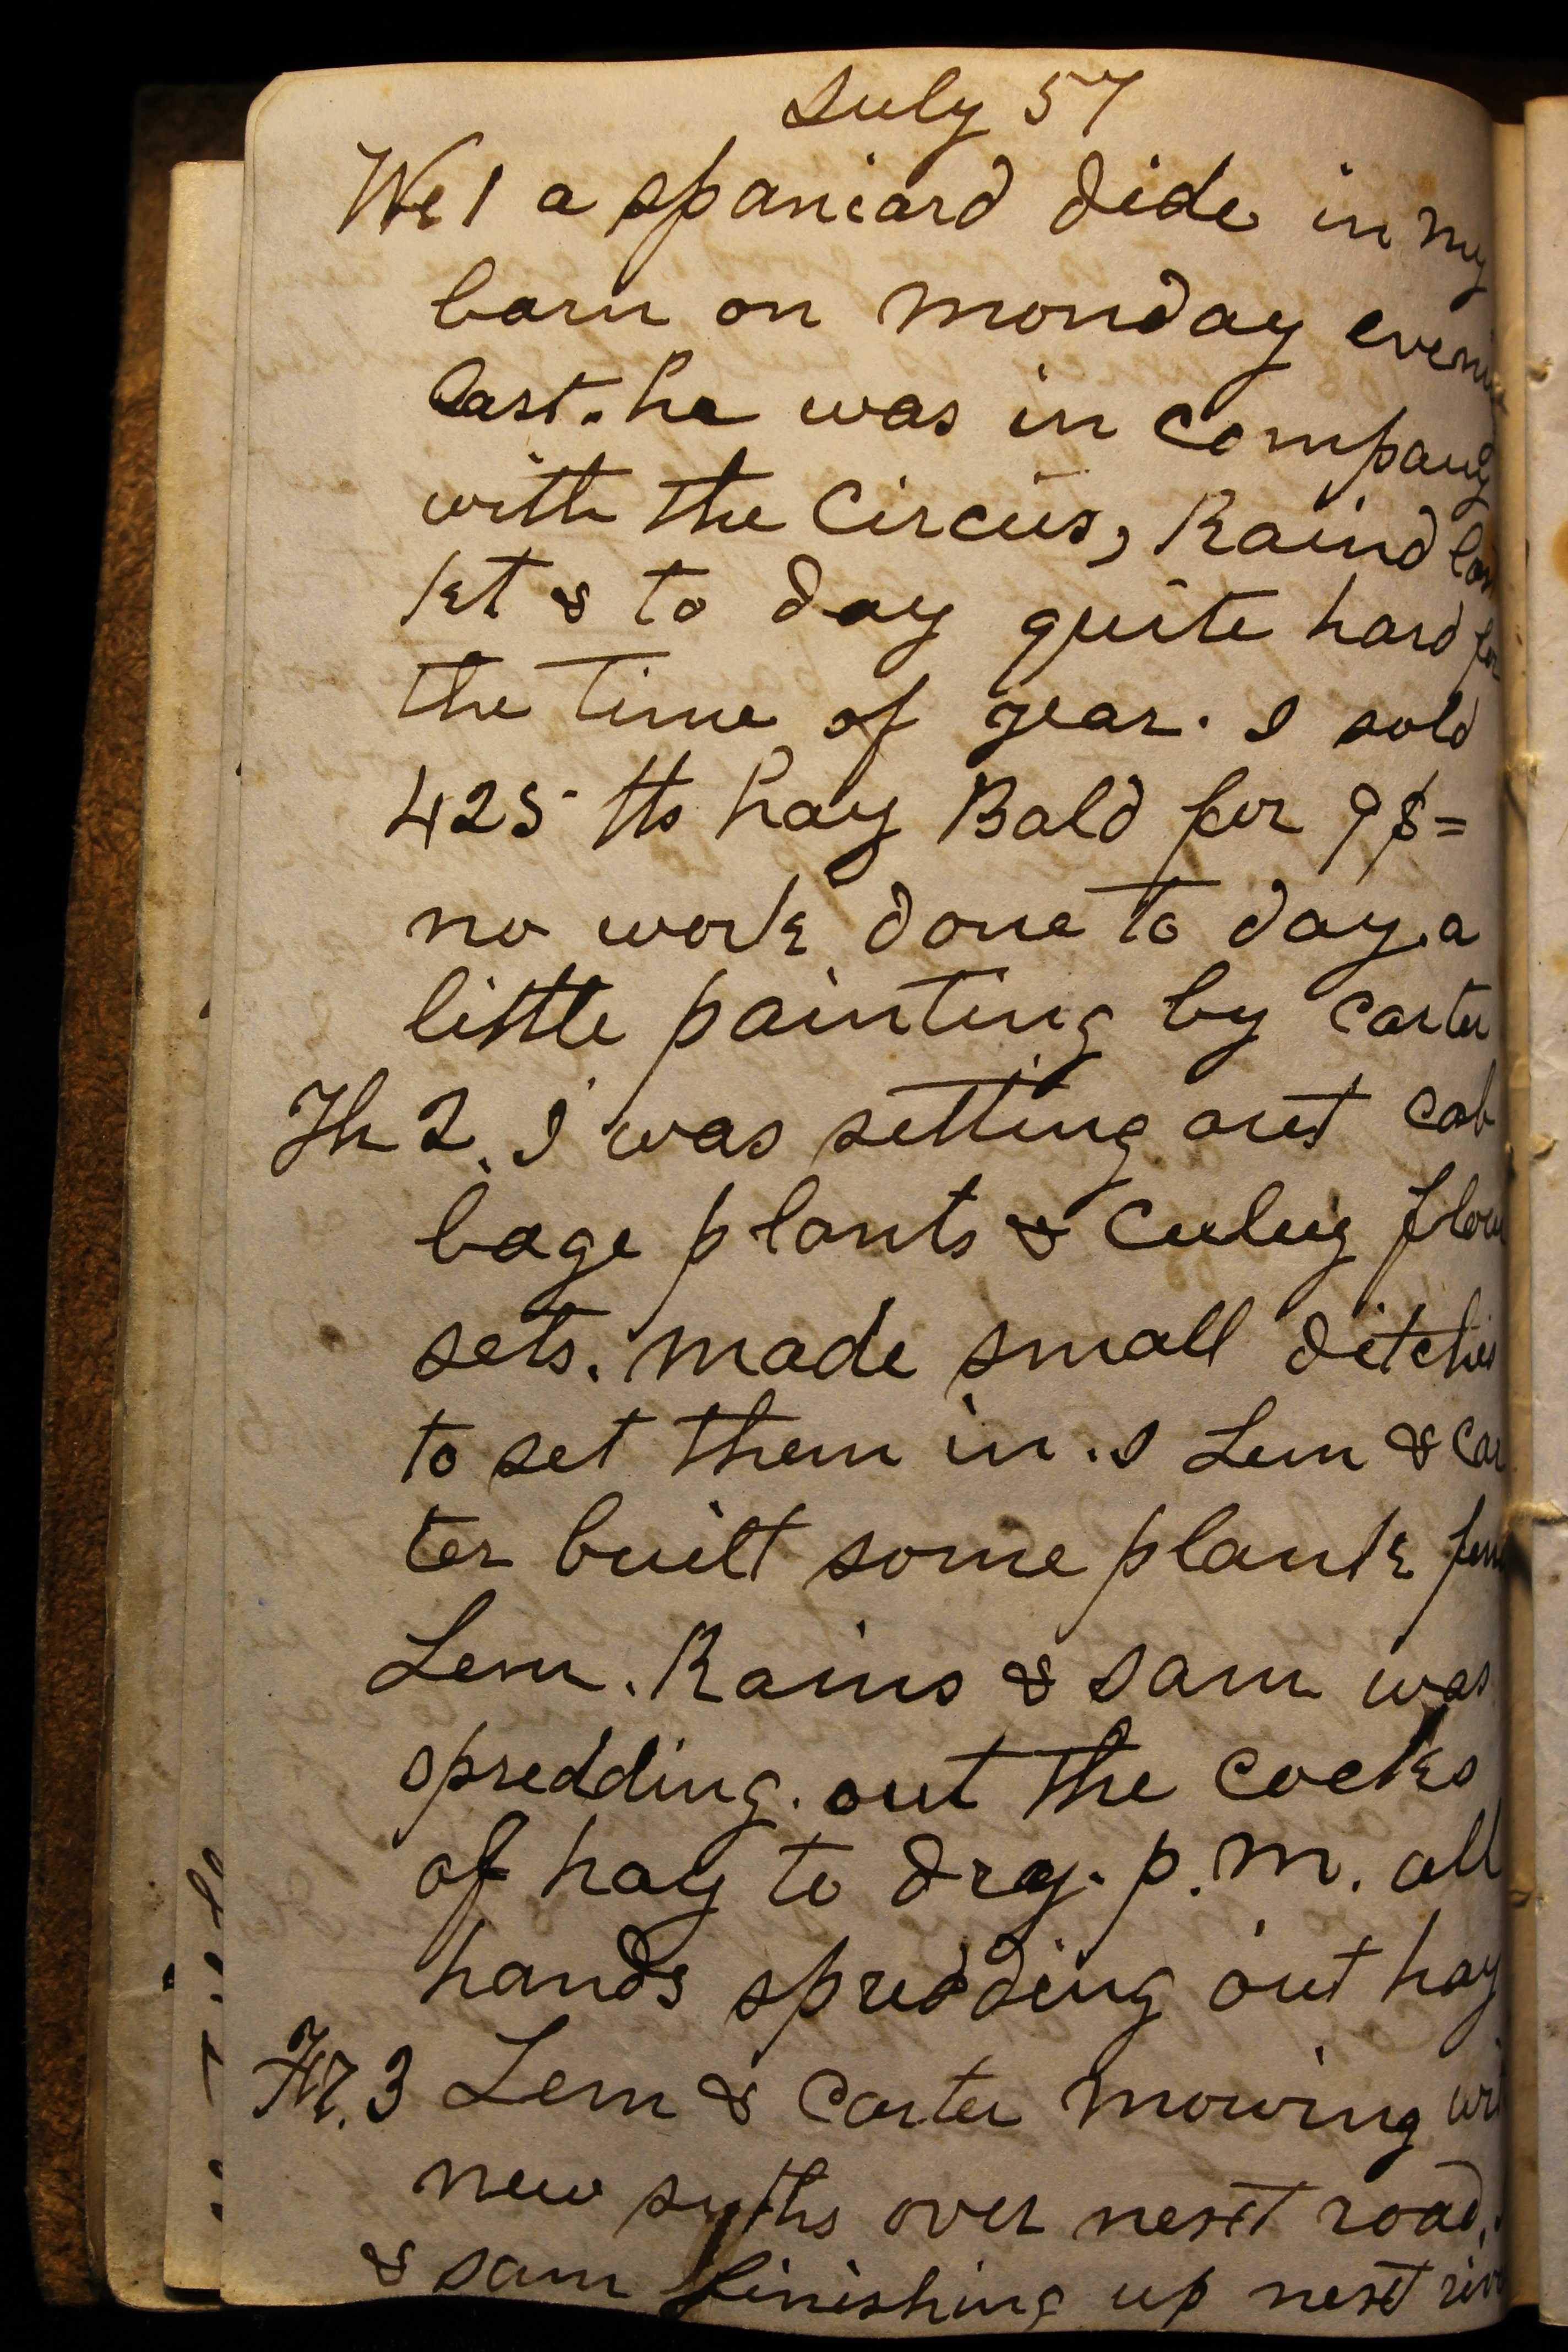 July 57
We 1 a spaniard dide in my
barn on monday evenin
last. he was in company
with the Circus, Raind las
kt & to day quite hard for
the time of year. I sold
425 lbs hay Bald for 9$=
no work done to day. a
little painting by carter
Th 2. I was setting out cab
bage plants & Culuy flow
sets. made small ditches
to set them in. I Lem & Car
ter built some plank fen
Lem. Rains & Sam was
spredding. out the cocks
of hay to dry. p.m. all
hands spredding out hay
Fr. 3 Lem & Carter mowing wit
new syths over next road,
& Sam finishing up next riv